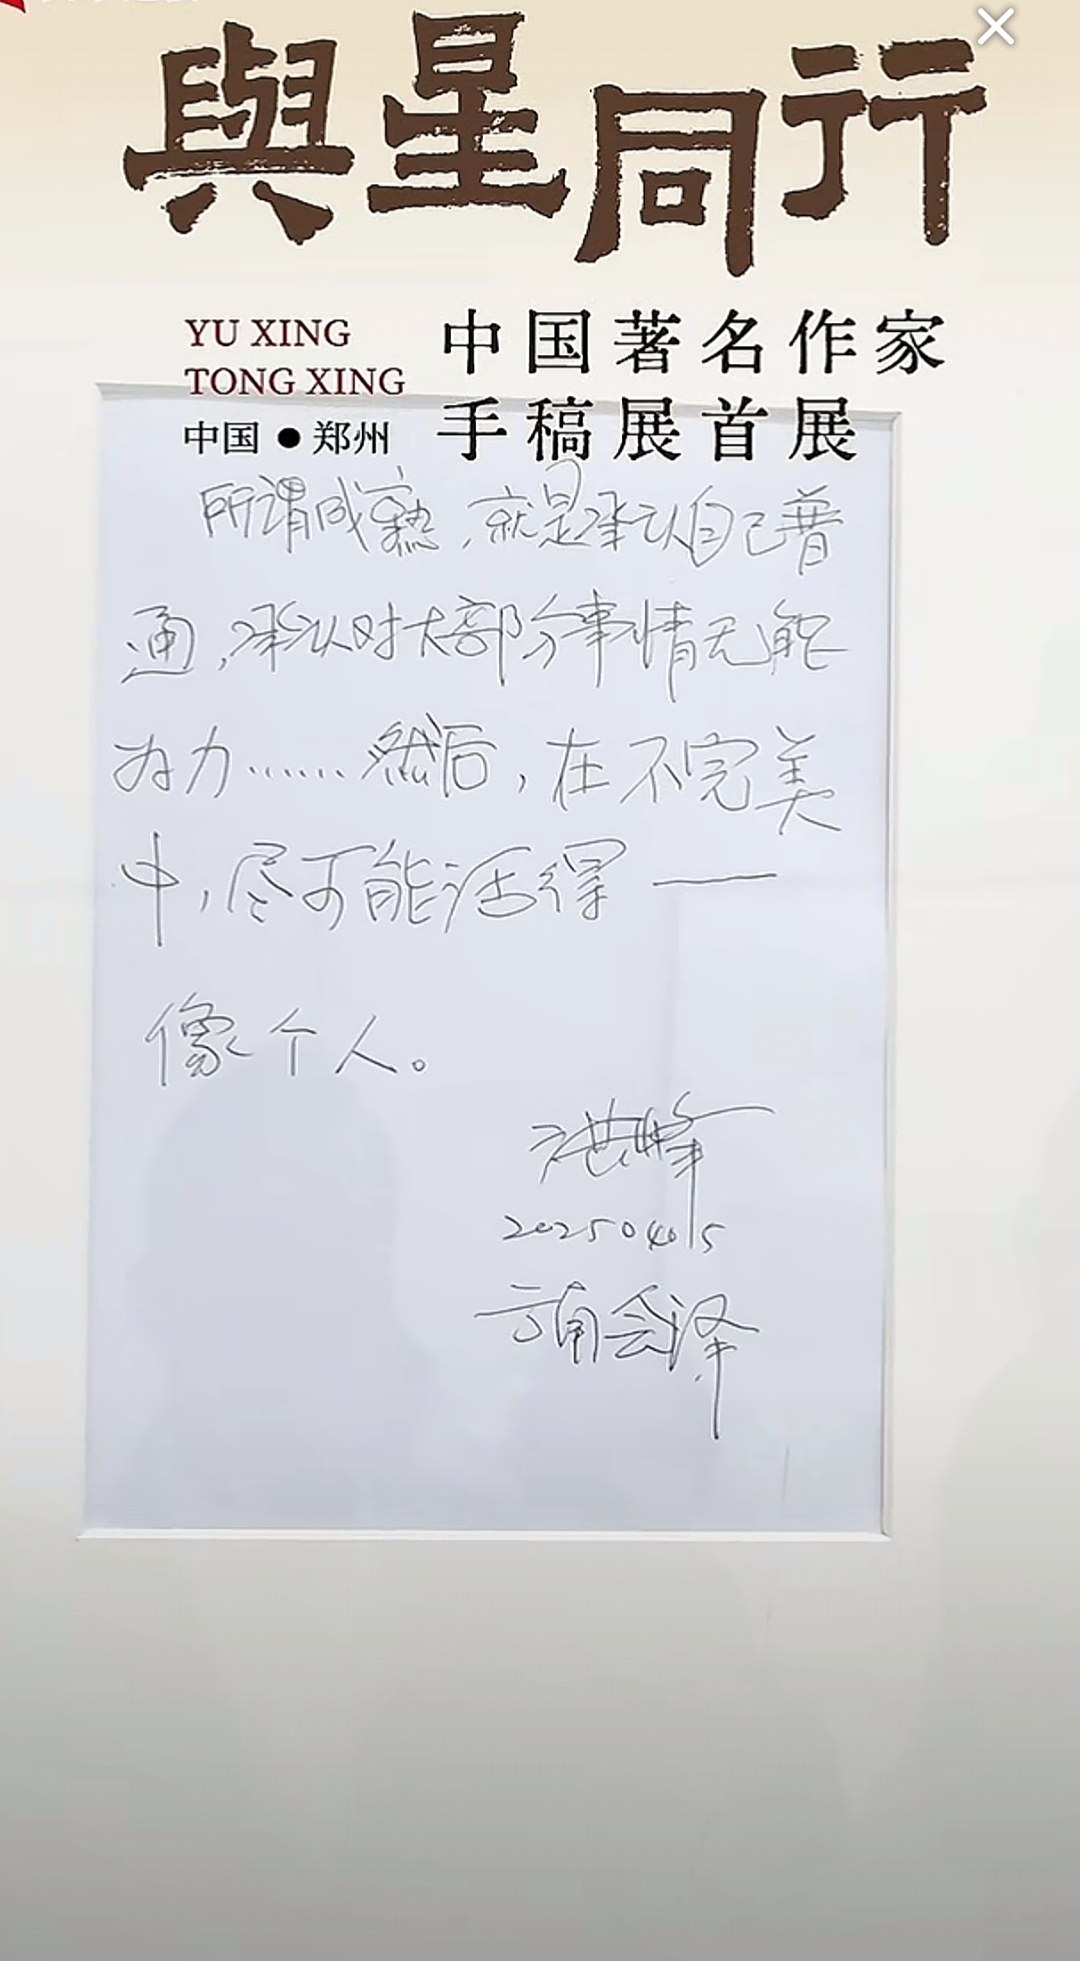 與星同行
YU XING
TONG XING
中国●郑州
中国著名作家
手稿展首展
所谓成熟,就是承认自己普
通,承认对大部分事情无能
为力……然后,在不完美
中,尽可能活得——
像个人。
洪峰
20250415
云南会泽